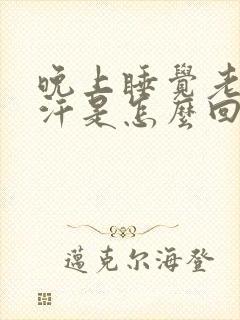 晚上睡覺老
汗是怎麼回
邁克尔海登